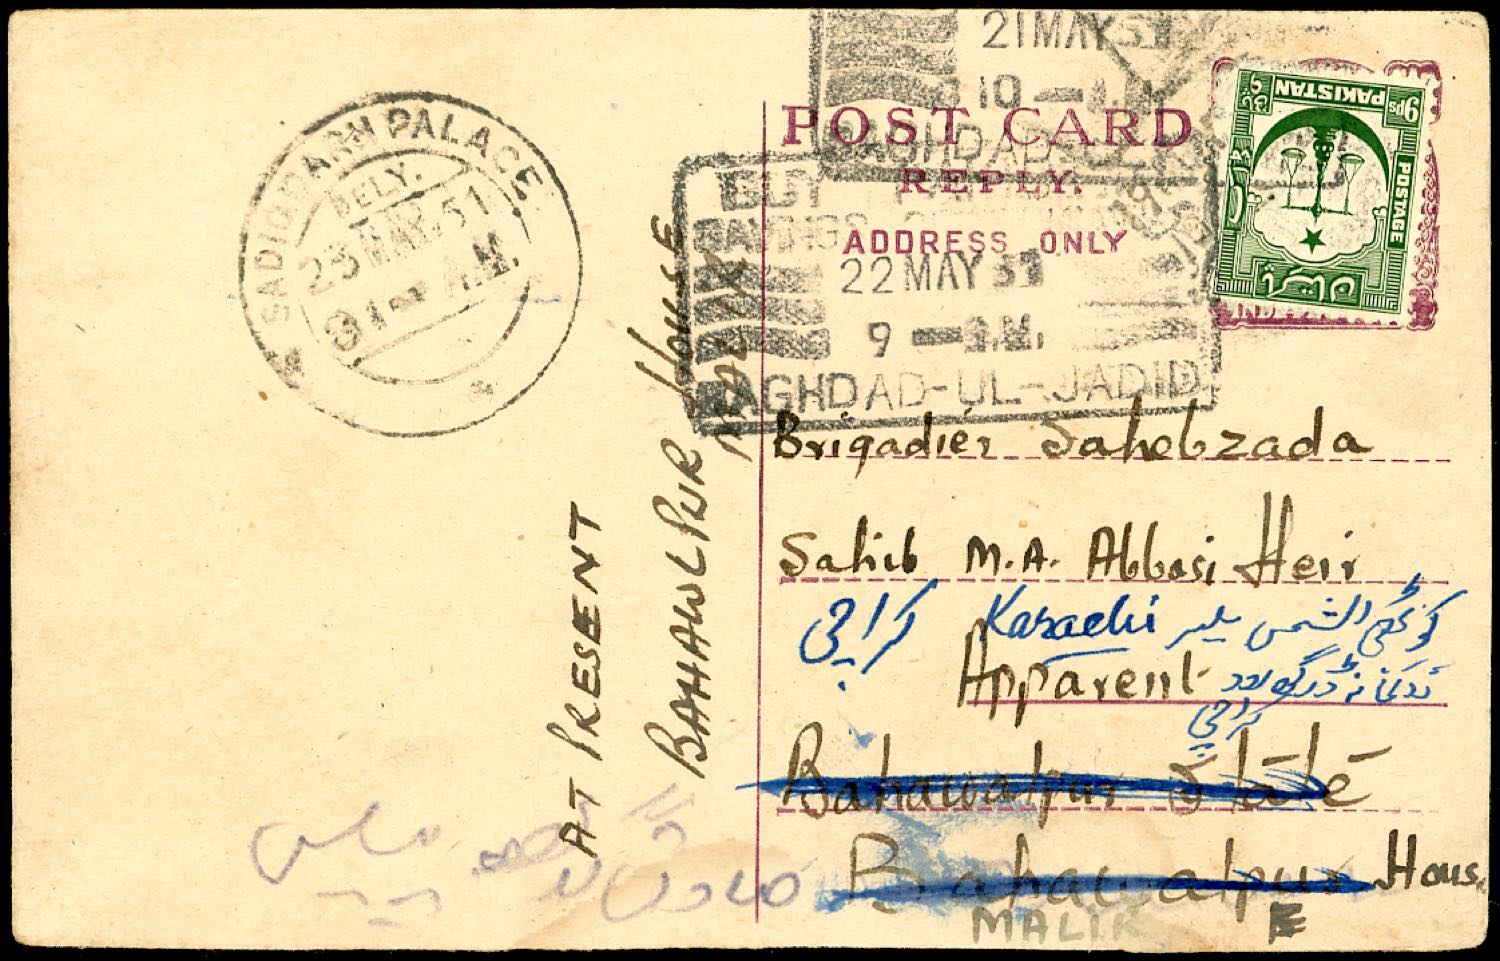 SADIQGARH PALACE
DELY.
23 MAY. 51
A.M.
21 MAY 51
10 —
BAGHDAD-UL-
POST CARD
REPLY.
ADDRESS ONLY
BUY
SAVINGS
22 MAY 51
9 — A.M.
BAGHDAD-UL-JADID
PAKISTAN
9ps
POSTAGE
پاکستان
Brigadier Sahebzada
Sahib M.A. Abbasi Heir
کراچی Karachi کوٹھی الشمس ملیر
Apparent
کراچی
Bahawalpur State
Bahawalpur House
MALIR
AT PRESENT
BAHAWLPUR House
MALIR